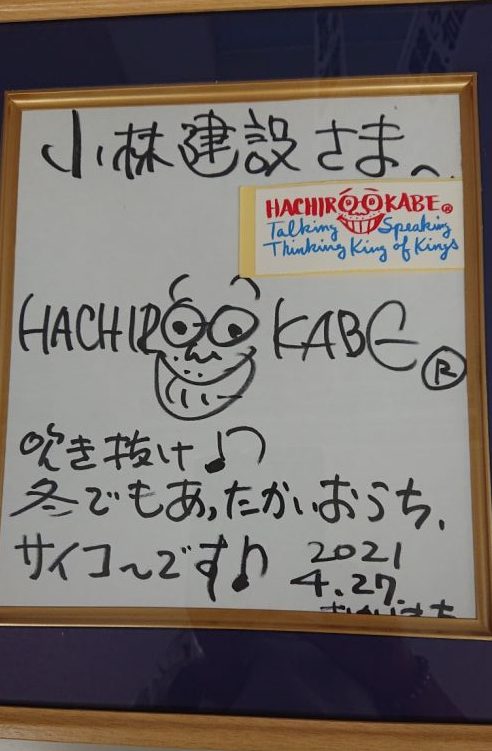 小林建設さま、
HACHIROO KABE®
Talking Speaking
Thinking King of Kings
HACHIROO KABE®
吹き抜け♪
冬でもあったかいおうち、
サイコ〜です♪
2021
4.27.